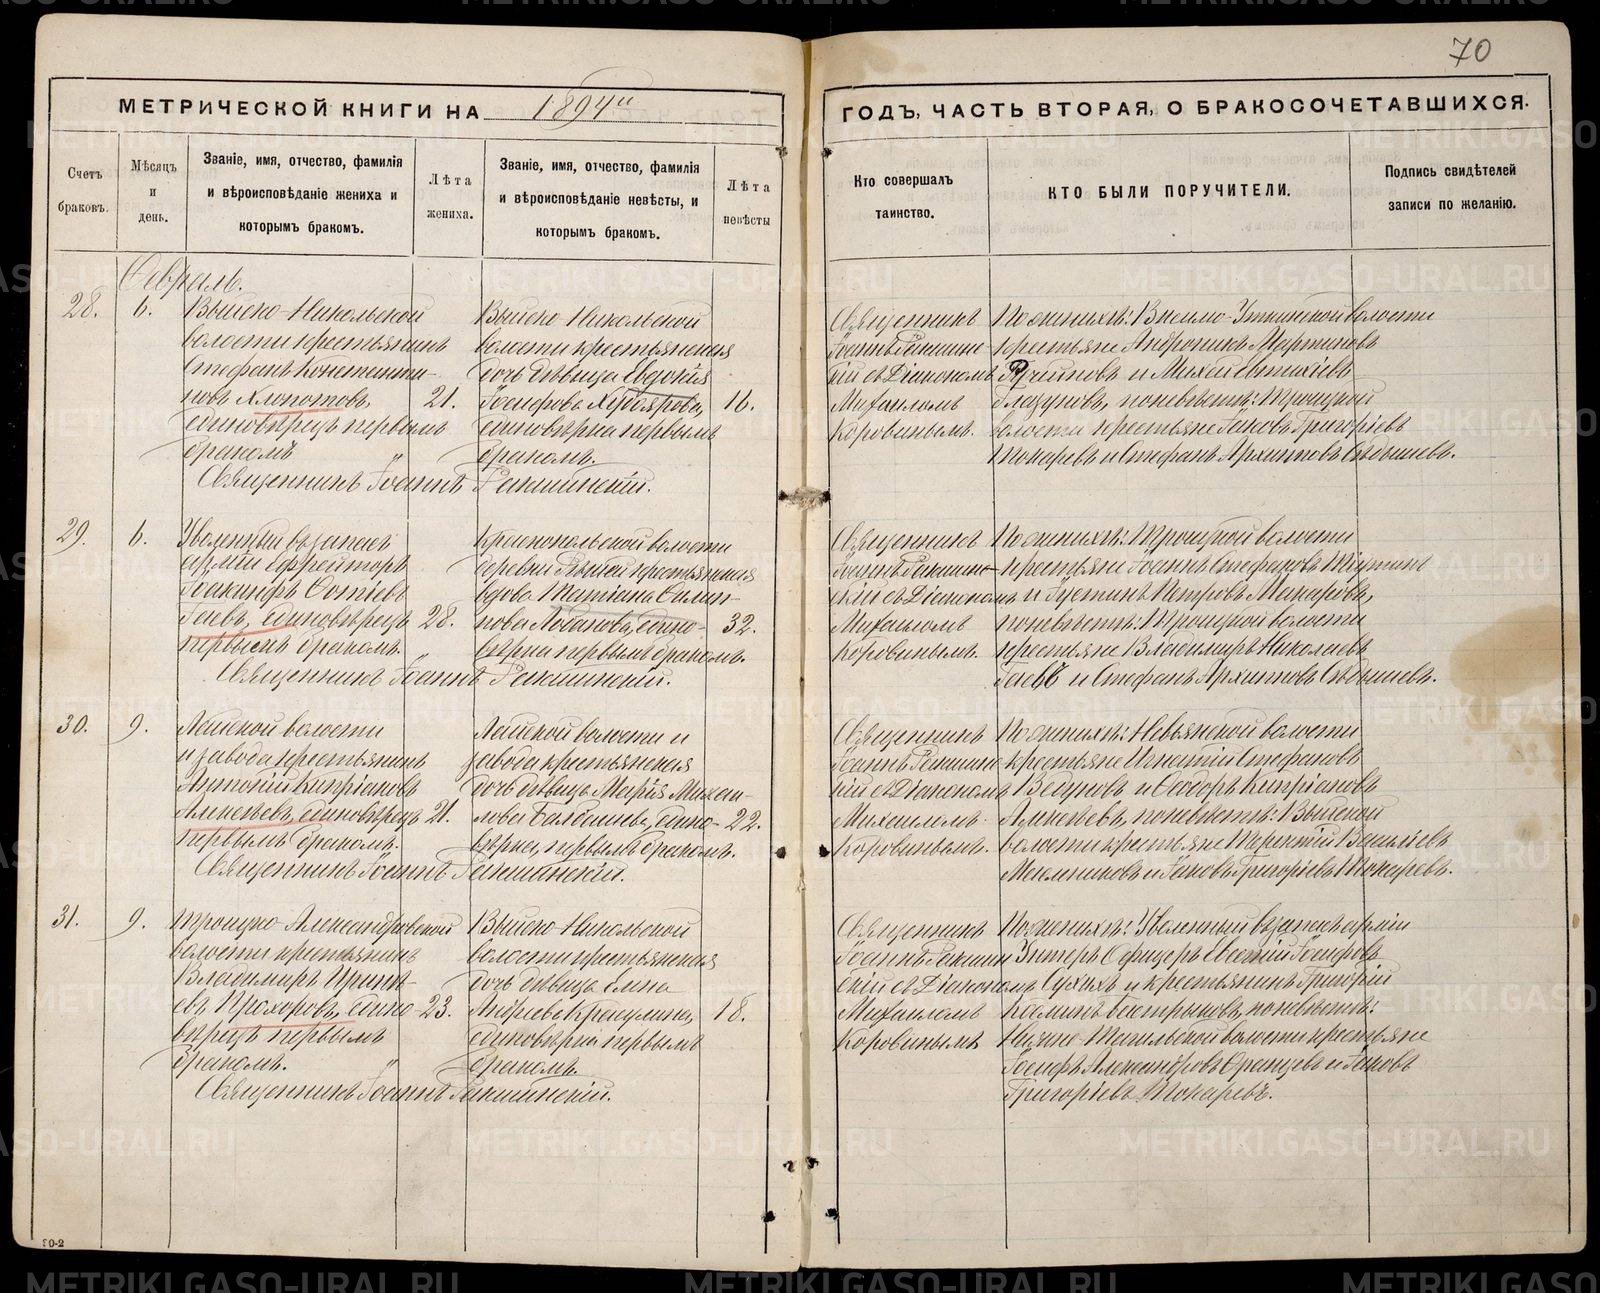 70
МЕТРИЧЕСКОЙ КНИГИ НА 1894й
ГОДЪ, ЧАСТЬ ВТОРАЯ, О БРАКОСОЧЕТАВШИХСЯ.
Счетъ браковъ.
Мѣсяцъ и день.
Званіе, имя, отчество, фамилія
и вѣроисповѣданіе жениха и
которымъ бракомъ.
Лѣта жениха.
Званіе, имя, отчество, фамилія
и вѣроисповѣданіе невѣсты, и
которымъ бракомъ.
Лѣта невѣсты
Кто совершалъ
таинство.
КТО БЫЛИ ПОРУЧИТЕЛИ.
Подпись свидѣтелей
записи по желанію.
Февраль.
28.
6.
Выйско-Никольской
волости крестьянинъ
Стефанъ Константи-
новъ Хлопотовъ,
единовѣрецъ первымъ
бракомъ
21.
Выйско-Никольской
волости крестьянская
дочь дѣвица Евдокія
Іосифова Худоярова,
единовѣрка первымъ
бракомъ.
16.
Священникъ Іоаннъ
Священникъ
Михаиломъ
Коровинымъ.
По женихѣ: Висимо-Уткинской волости
крестьяне Андроникъ Мартиновъ
и Михаилъ Евтихіевъ
Глазуновъ, по невѣстѣ: Троицкой
волости крестьяне Іаковъ Григоріевъ
Токаревъ и Стефанъ Архиповъ Сѣдышевъ.
29.
6.
Уволенный въ запасъ
арміи ефрейторъ
Іоакимъ Фотіевъ
Гаевъ, единовѣрецъ
первымъ бракомъ.
28.
Краснопольской волости
деревни крестьянская
вдова Татіана Филип-
пова Лобанова, едино-
вѣрка первымъ бракомъ.
32.
Священникъ Іоаннъ
Священникъ
Михаиломъ
Коровинымъ.
По женихѣ: Троицкой волости
крестьяне Іоаннъ Стефановъ
и Іустинъ Петровъ Макаровъ,
по невѣстѣ: Троицкой волости
крестьяне Владимиръ Николаевъ
Гаевъ и Стефанъ Архиповъ Сѣдышевъ.
30.
9.
Лайской волости
и завода крестьянинъ
Антоній Кипріановъ
Алексѣевъ, единовѣрецъ
первымъ бракомъ.
21.
Лайской волости и
завода крестьянская
дочь дѣвица Марія Михаи-
лова Балбашева, едино-
вѣрка, первымъ бракомъ.
22.
Священникъ Іоаннъ
Священникъ
Михаиломъ
Коровинымъ.
По женихѣ: Невьянской волости
крестьяне Игнатій Стефановъ
Ведуновъ и Ѳеодоръ Кипріановъ
Алексѣевъ, по невѣстѣ: Выйской
волости крестьяне Терентій Васильевъ
Масленниковъ и Іаковъ Григоріевъ Токаревъ.
31.
9.
Троицко-Александровской
волости крестьянинъ
Владимиръ Ирине-
евъ Прохоровъ, едино-
вѣрецъ первымъ
бракомъ.
23.
Выйско-Никольской
волости крестьянская
дочь дѣвица Елена
Андреева Красулина,
единовѣрка первымъ
бракомъ.
18.
Священникъ Іоаннъ
Священникъ
Михаиломъ
Коровинымъ
По женихѣ: Уволенный въ запасъ арміи
Унтеръ Офицеръ Евсевій Іосифовъ
Сухихъ и крестьянинъ Григорій
по невѣстѣ:
Нижне-Тагильской волости крестьяне
Іосифъ Александровъ и Іаковъ
Григоріевъ Токаревъ.
METRIKI.GASO-URAL.RU